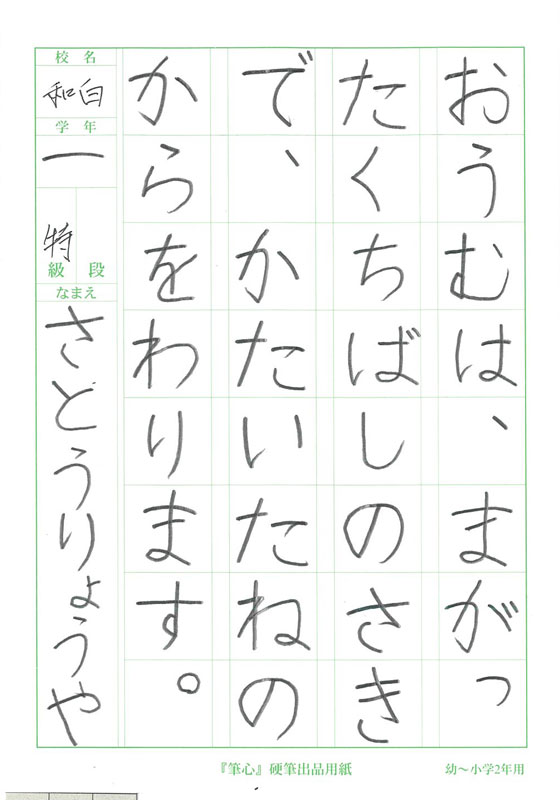 おうむは、まがっ
たくちばしのさき
で、かたいたねの
からをわります。
校名
和白
学年
一
特
級段
なまえ
さとうりょうや
『筆心』硬筆出品用紙
幼〜小学2年用